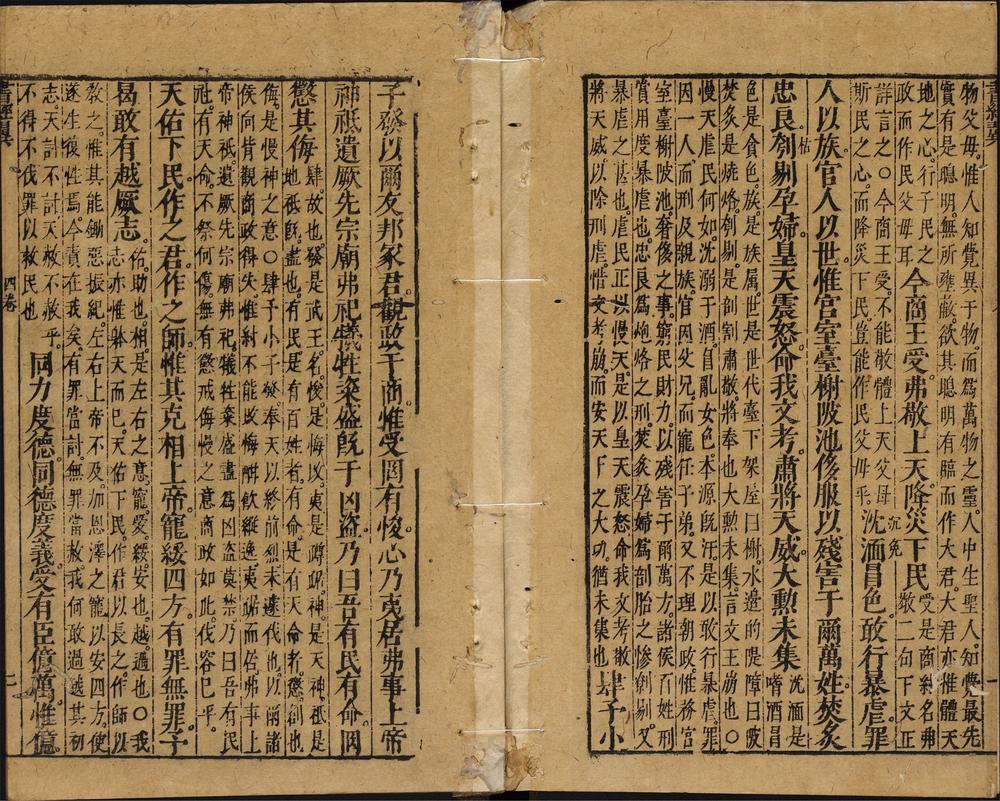 物父毋。惟人知覺異于物。而爲萬物之靈。人中生聖人。知覺最先
實有是聰明。無所壅蔽。欲其聰明有臨而作大君。大君亦惟體天
地之心。行于民之
政而作民父毋耳
今商王受。弗敬上天。降災下民
受是商紂名。弗
敬二句下文正
詳言之〇今商王受。不能敬體上天父母
斯民之心。而降災下民。豈能作民父毋乎。
沈湎冒色。敢行暴虐。罪
人以族。官人以世。惟宮室臺榭陂池侈服以殘害于爾萬姓。焚炙
忠良。刳剔孕婦。皇天震怒。命我文考。肅將天威。大勲未集
沈湎是
嗜酒冐
色是貪色。族是族属。世是世代。臺下架屋曰榭。水邊的隄障曰陂
焚炙是燒烙。刳剔是剖割。肅敬。將奉也。大勲未集言文王崩也〇
慢天虐民何如。沈溺于酒。自亂女色。本源既汙。是以敢行暴虐。罪
因一人而刑及親族。官因父兄。而寵任子弟。又不理朝政。惟務宮
室臺榭陂池奢侈之事。竆民財力。以殘害于爾萬方。諸侯百姓刑
賞用度暴虐也。忠良爲炮烙之刑。焚炙孕婦爲剖胎之惨刳剔。又
暴虐之甚也。虐民正以慢天。是以皇天震怒。命我文考敬
將天威。以除刑虐。惜文考崩。而安天下之大功猶未集也
肆予小
子發。以爾友邦冢君。觀政于商。惟受罔有悛心。乃夷居。弗事上帝
神祇。遺厥先宗廟弗祀。犧牲粢盛既于凶盜。乃曰吾有民有命。罔
懲其侮
肆故也。發是武王名。悛是悔改。夷是蹲踞。神是天神。祇是
地祇。既盡也。有民是有百姓者。有命是有天命者。懲創也
侮是慢神之意〇肆予小子發奉天以終前烈。未遽代也。以爾諸
侯向背觀商政得失。惟紂不能改悔。酣飲縱逸。夷踞而居。弗事上
帝神祇。遺厥先宗廟弗祀。犧牲粢盛盡爲凶盜莫禁。乃曰吾有民
社。有天命。不祭何傷。無有懲戒侮慢之意。商政如此。伐容已乎。
天佑下民。作之君。作之師。惟其克相上帝。寵綏四方。有罪無罪。予
曷敢有越厥志
佑。助也。相。是左右之意。寵愛。綏安也。越。過也〇我
志。亦惟躰天而已。天佑下民。作君以長之。作師以
教之。惟其能鋤惡振紀。左右上帝不及。加恩澤之寵。以安四方。使
遂生復性焉。今責在我矣。有罪當討。無罪當赦。我何敢過越其初
志。天討不討。天赦不赦乎。
不得不伐罪以救民也
同力度德。同德度義。受有臣億萬。惟億
四卷